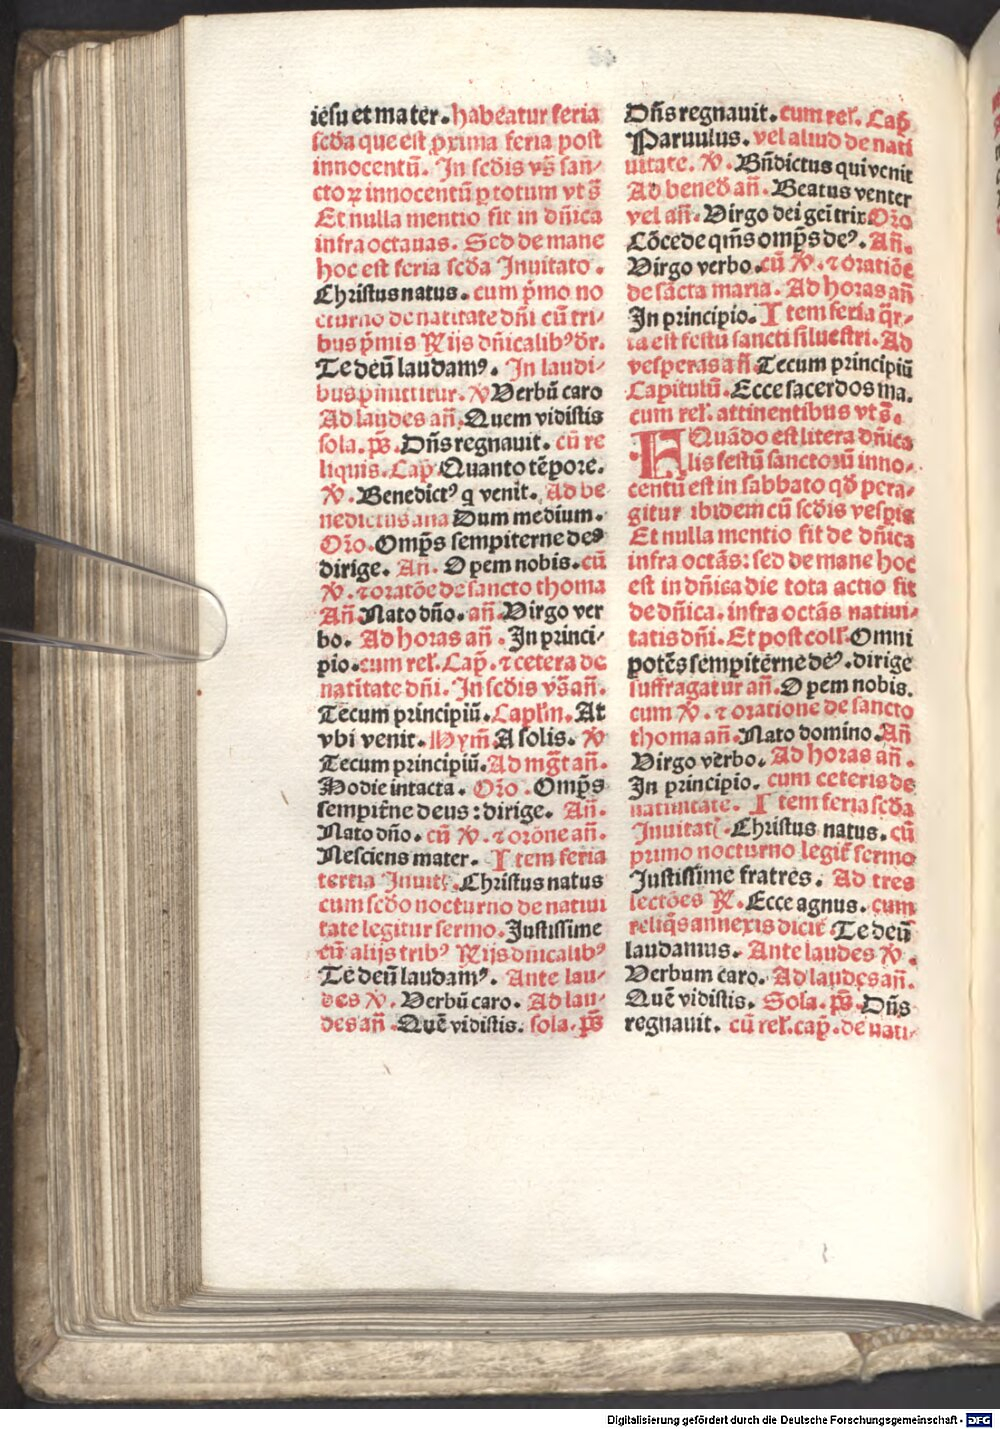 iesu et mater. habeatur feria
scd̄a que est ꝓxima feria post
innocentū. In scd̄is vs̄ san-
ctoꝝ innocentū ꝑ totum vt s̄
Et nulla mentio fit in dn̄ica
infra octauas. Sed de mane
hoc est feria scd̄a Inuitato.
Christus natus. cum p̄mo no
cturno de natitate dn̄i cū tri-
bus p̄mis Rijs dn̄icalibꝰ dr̄.
Te deū laudamꝰ. In laudi-
bus
℣ Verbū caro
Ad laudes an̄. Quem vidistis
sola. ps̄. Dn̄s regnauit. cū re
liquis. Cap̄ Quanto tēpore.
℣. Benedictꝰ q venit. Ad be
nedictus ana Dum medium.
Oro. Omp̄s sempiterne des
dirige. An̄. O pem nobis. cū
℣. ⁊ oratōe de sancto thoma
An̄ Nato dn̄o. an̄. Virgo ver
bo. Ad horas an̄. In princi-
pio. cum rel'. Cap̄. ⁊ cetera de
natitate dn̄i. In scd̄is vs̄ an̄.
Tecum principiū. Caplm̄. At
vbi venit. Hym̄. A solis. ℣
Tecum principiū. Ad mgt̄ an̄.
Hodie intacta. Oro. Omp̄s
sempitn̄e deus: dirige. An̄.
Nato dn̄o. cū ℣. ⁊ orōne an̄.
Nesciens mater. Item feria
tertia Inuit. Christus natus
cum scd̄o nocturno de natiui
tate legitur sermo. Justissime
cū alijs tribꝰ Rijs dn̄icalibꝰ
Te deū laudamꝰ. Ante lau-
des ℣. Verbū caro. Ad lau-
des an̄. Quē vidistis. sola. ps̄
Dn̄s regnauit. cum rel'. Cap̄
Paruulus. vel aliud de nati
uitate. ℣. Bn̄dictus qui venit
Ad bened̄ an̄. Beatus venter
vel an̄. Virgo dei geītrix Oro
Cōcede qm̄s omp̄s deꝰ. An̄.
Virgo verbo. cū ℣. ⁊ oratiōe
de sancta maria. Ad horas an̄
In principio. Item feria qr̄-
ta est festū sancti siluestri. Ad
vesperas an̄ Tecum principiū
Capitulū. Ecce sacerdos ma.
cum rel'. attinentibus vt s̄.
Quādo est litera dn̄ica
lis festū sanctorū inno-
centū est in sabbato qd̄ pera-
gitur ibidem cū scd̄is vesp̄is
Et nulla mentio fit de dn̄ica
infra octās: sed de mane hoc
est in dn̄ica die tota actio fit
de dn̄ica. infra octās natiui-
tatis dn̄i. Et post coll'. Omni
potēs sempiterne deꝰ. dirige
suffragatur an̄. O pem nobis.
cum ℣. ⁊ oratione de sancto
thoma an̄. Nato domino. An̄
Virgo verbo. Ad horas an̄.
In principio. cum ceteris de
natiuitate. Item feria scd̄a
Inuitat. Christus natus. cū
primo nocturno legit̄ sermo
Justissime fratres. Ad tres
lectōes R. Ecce agnus. cum
reliqs̄ annexis dicit̄. Te deū
laudamus. Ante laudes ℣.
Verbum caro. Ad laudes an̄.
Quē vidistis. Sola. ps̄. Dn̄s
regnauit. cū rel'. cap̄. de nati-
Digitalisierung gefördert durch die Deutsche Forschungsgemeinschaft - DFG